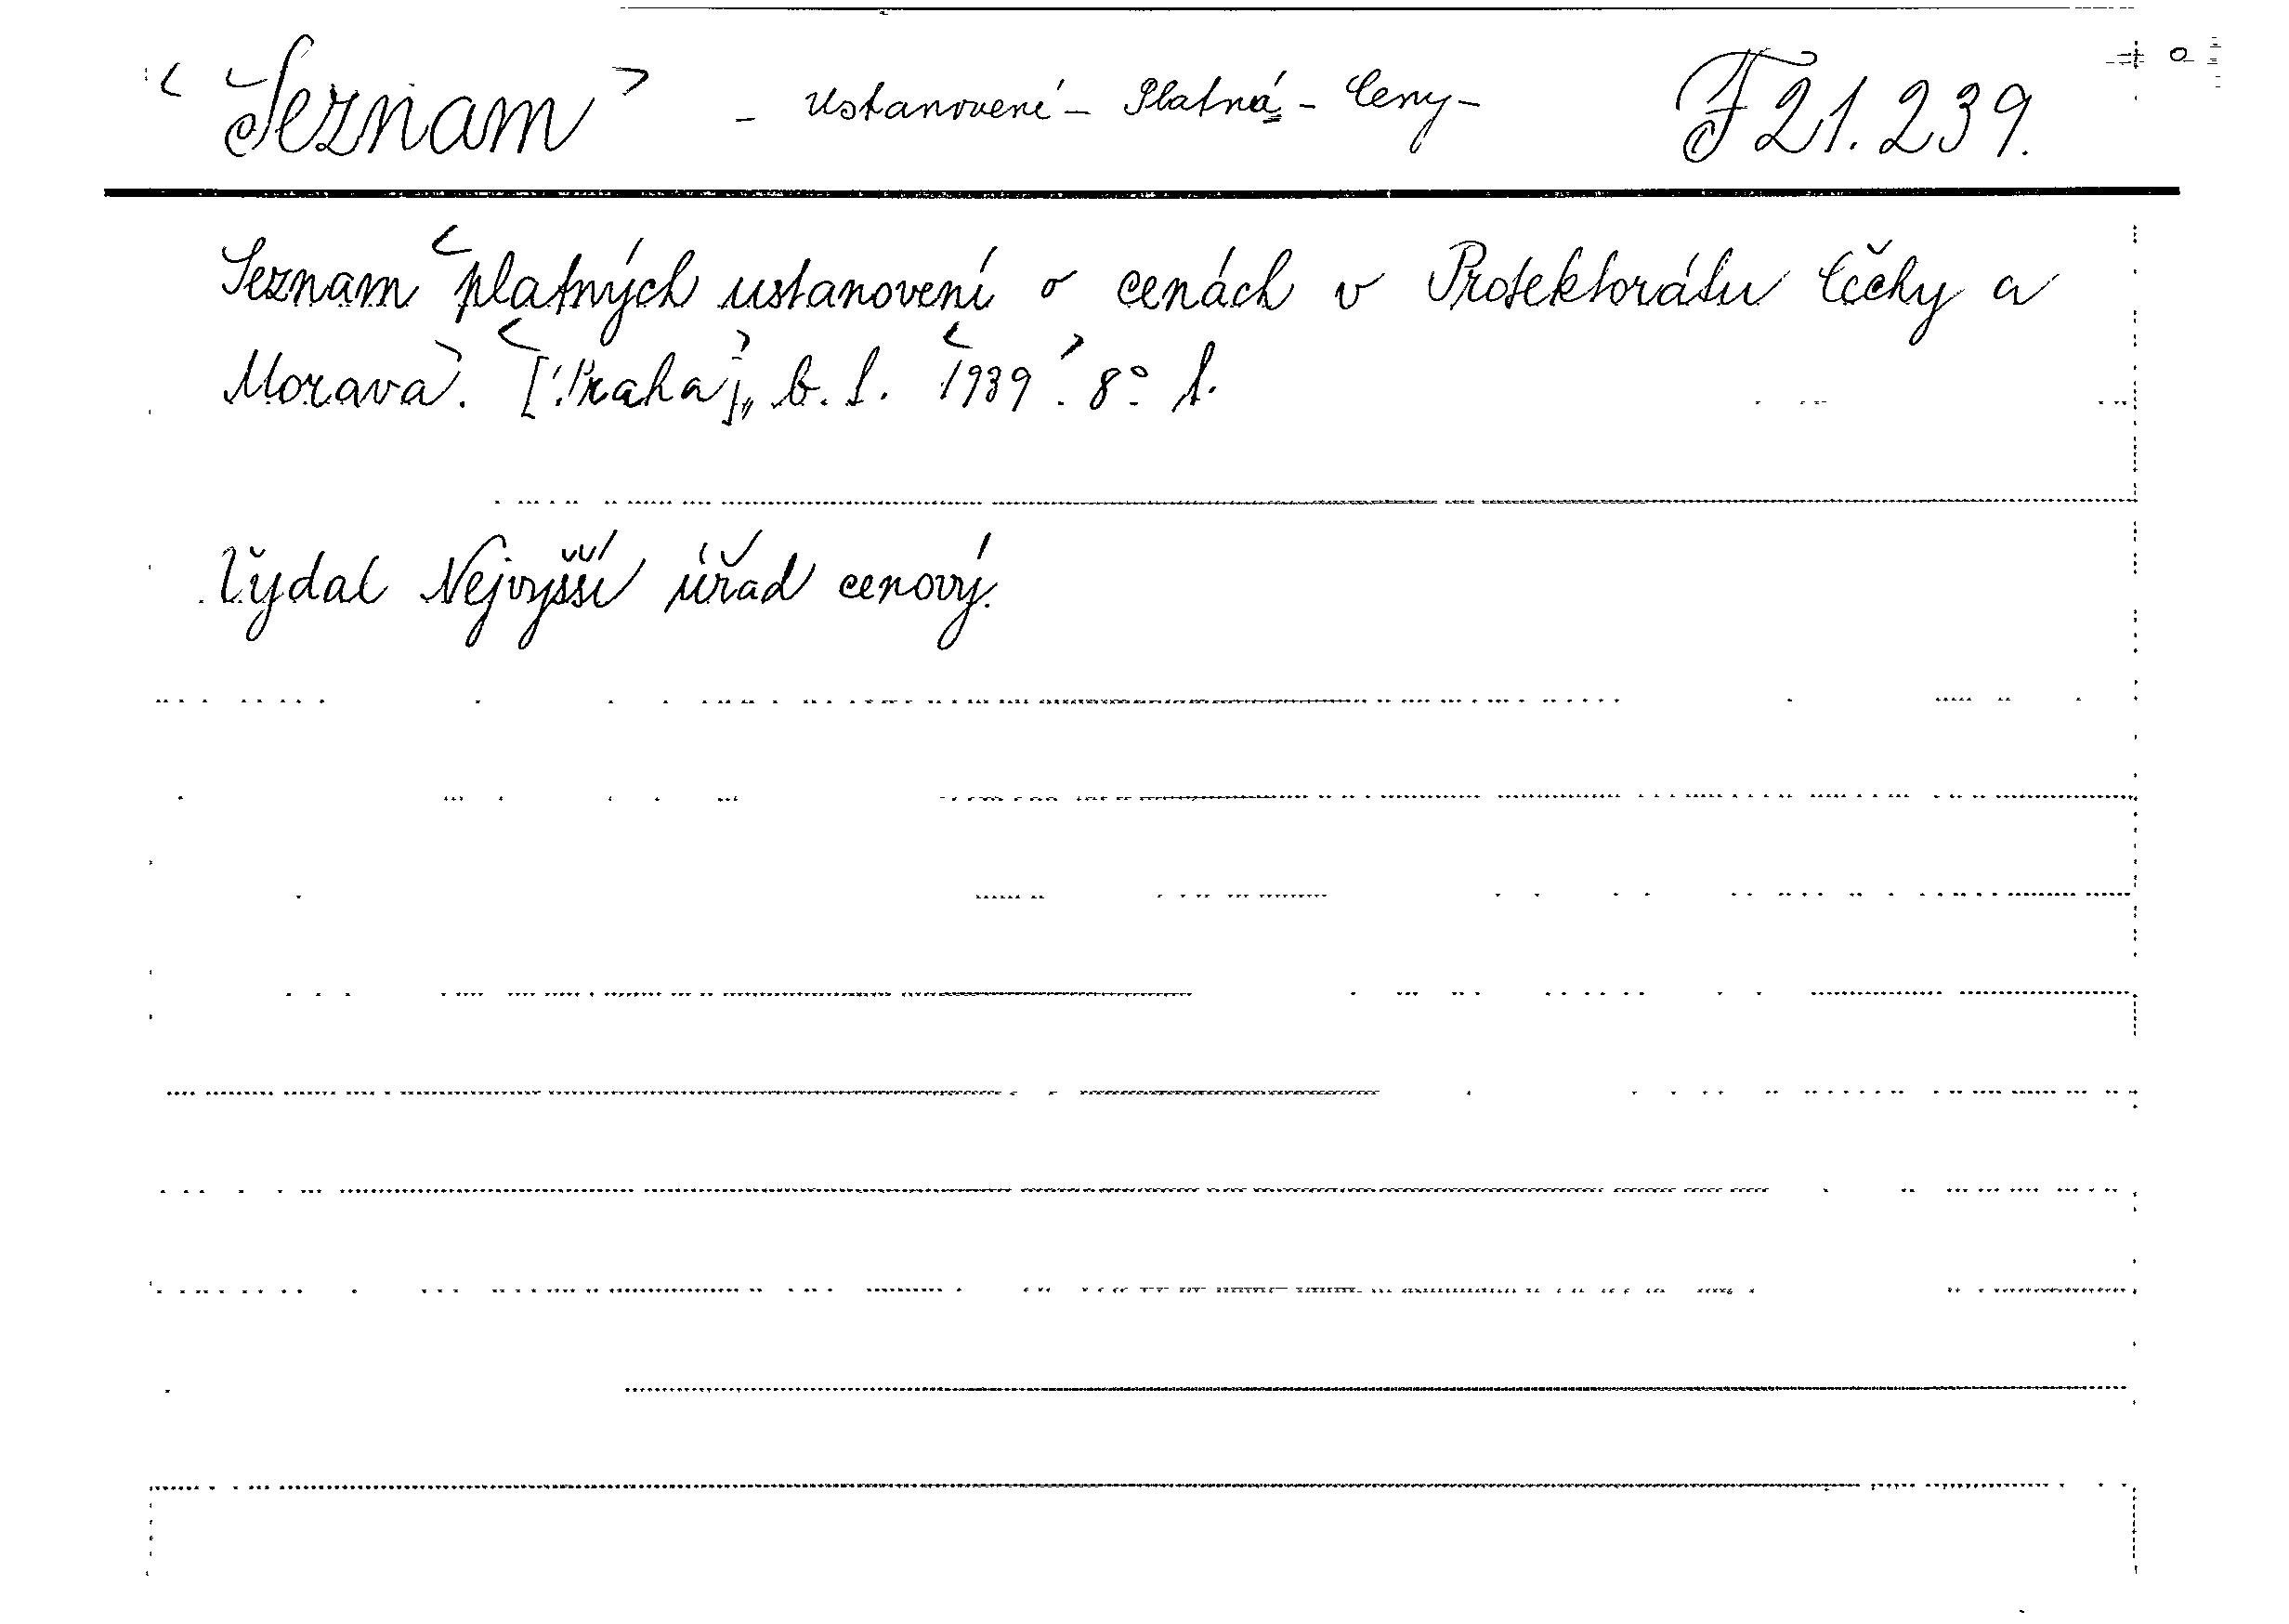 < Seznam > - Ustanovení - Platná - Ceny - F 21.239.
Seznam <platných ustanovení o cenách v Protektorátu Čechy a
Morava>. <[Praha]>, b. t. <1939>. 8° s.
Vydal Nejvyšší úřad cenový.